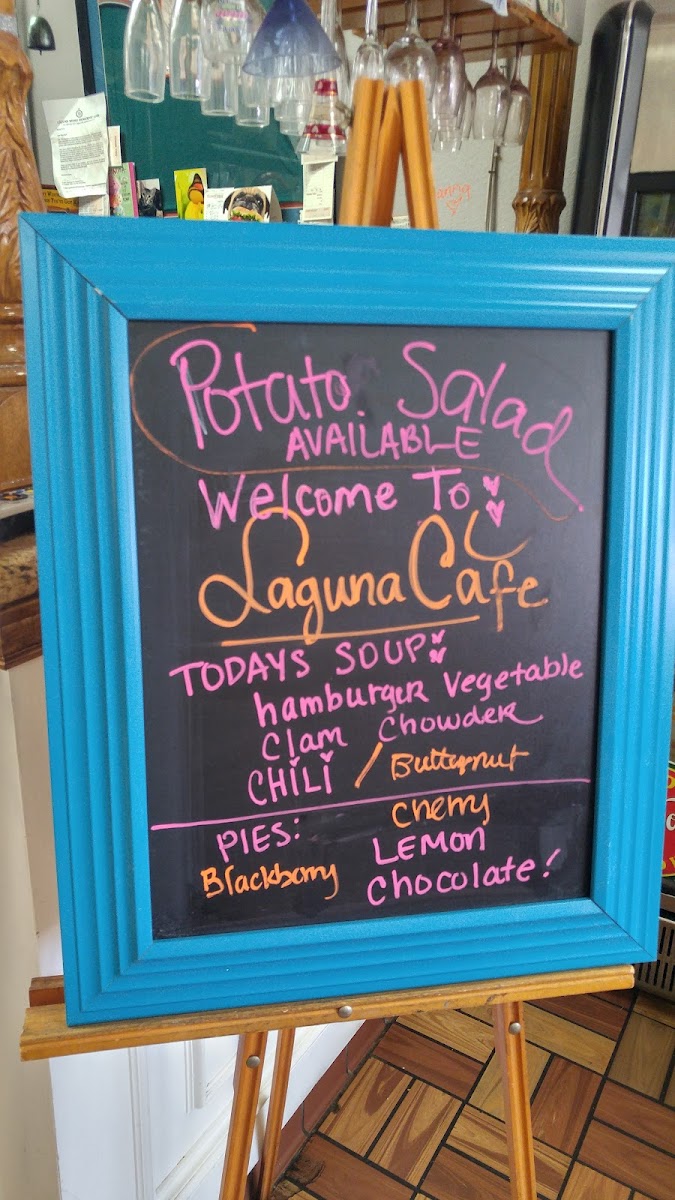 Potato Salad
AVAILABLE
Welcome To
Laguna Cafe
TODAYS SOUP:
hamburger Vegetable
Clam Chowder
CHiLi / Butternut
PIES:
Cherry
Blackberry
LEMON
Chocolate!